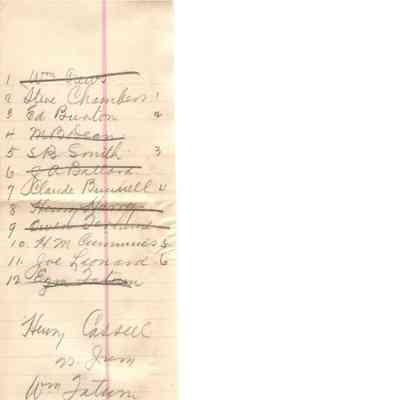 1 Wm
2 Steve Chambers 1
3 Ed Burton 2
4 M B Dean
5 S B Smith 3
6 J A Ballard
7 Claude Bunnell 4
8 Henry
9 Owen
10. H. M. Cummines 5
11. Joe Leonard 6
12 Tatum
Henry Cassell
vs.
Wm Tatum